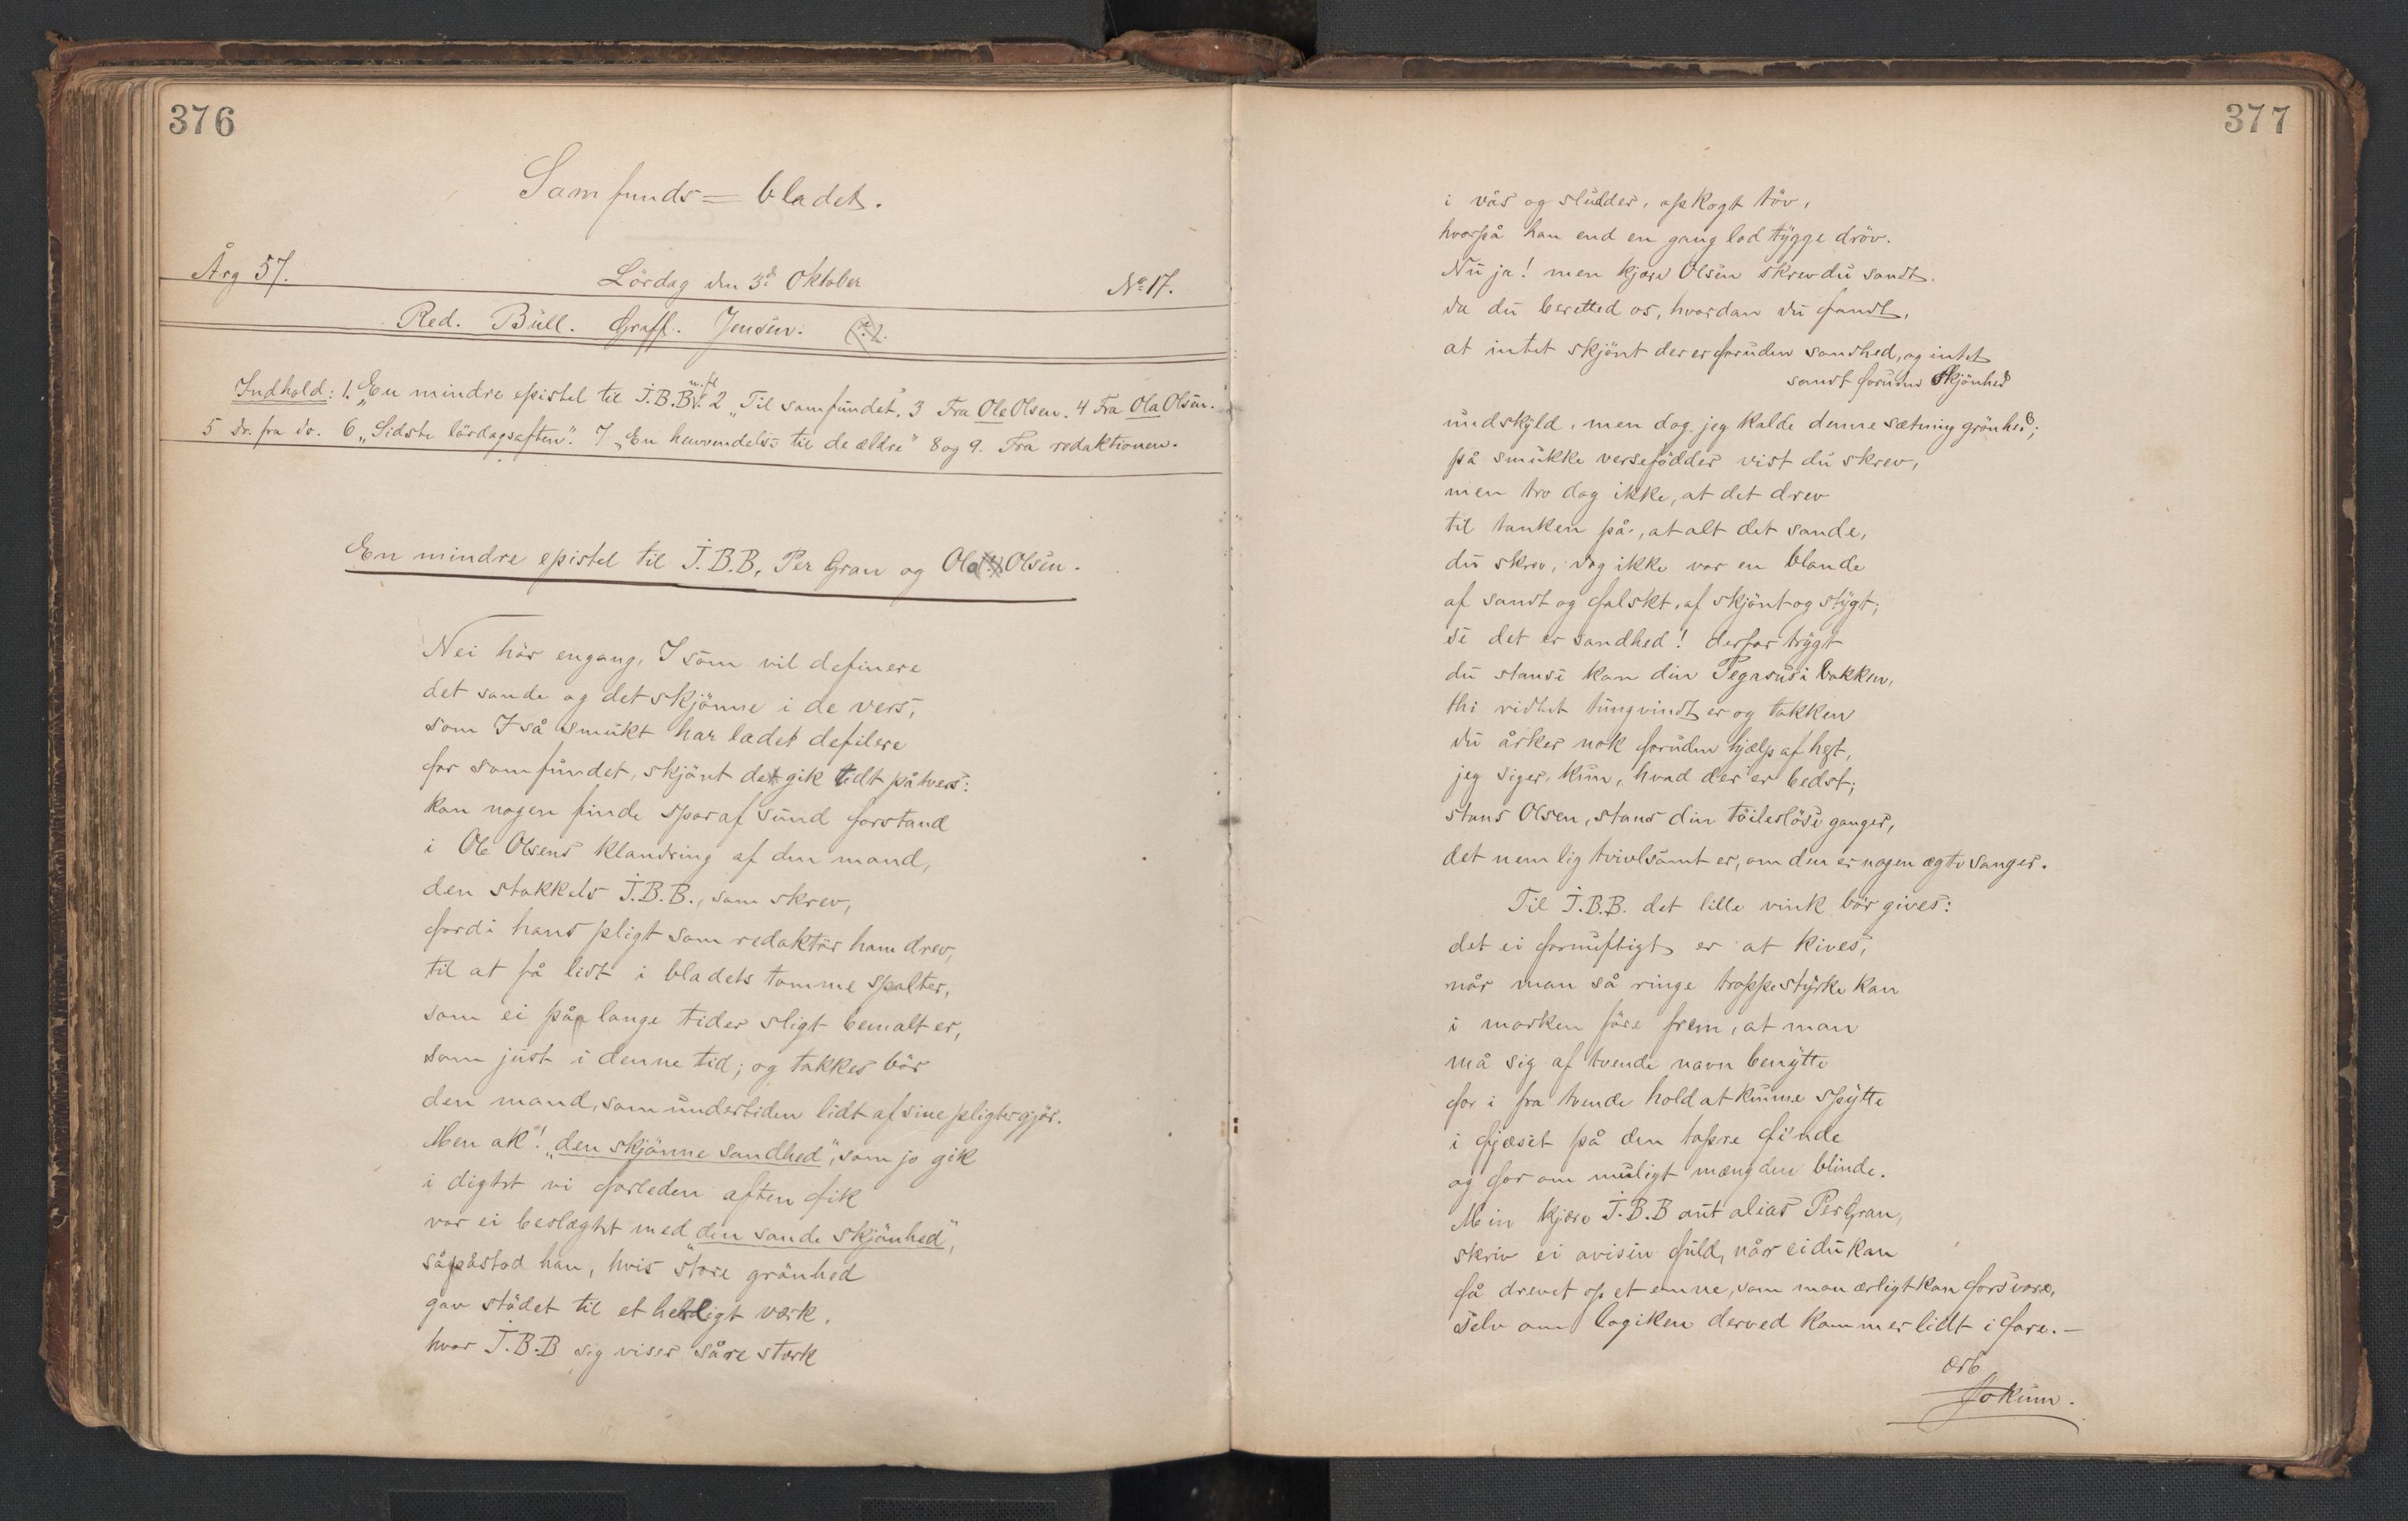 376
Samfunds=bladet.
Årg 57.
Lördag den 3d Oktober
No 17.
Red. Büll. Graff. Jensen.
Indhold: 1. „En mindre epistel til J.B.B. m.fl." 2 „Til samfundet". 3 Fra Ole Olsen. 4 Fra Ola Olsen.
5 do. fra do. 6 „Sidste lördagsaften". 7 „En henvendelse til de ældre" 8 og 9. Fra redaktionen.
En mindre epistel til J.B.B, Per Gran og Ola Olsen.
Nei hör engang, I som vil definere
det sande og det skjönne i de vers,
som I så smukt har ladet defilere
for samfundet, skjönt det gik tidt på tvers:
kan nogen finde spor af sund forstand
i Ole Olsens klandring af den mand,
den stakkels J.B.B., som skrev,
fordi hans pligt som redaktör ham drev,
til at få lidt i bladets tomme spalter,
som ei på lange tider sligt bemalt er,
som just i denne tid; og takkes bör
den mand, som undertiden lidt af sine pligter gjör.
Men ak! „den skjönne sandhed", som jo gik
i digtet vi forleden aften fik
var ei beslægtet med „den sande skjönhed",
så påstod han, hvis store grönhed
gav stödet til et herligt værk,
hvor J.B.B sig viser såre stærk
377
i vås og sludder, opkogt töv,
hvorpå han end en gang lod tygge dröv.
Nu ja! men kjære Olsen skrev du sandt.
da du beretted os, hvordan du fandt,
at intet skjönt der er foruden sandhed, og intet
sandt foruden skjönhed
undskyld, men dog jeg kalde denne sætning grönhed;
på smukke versefödder vist du skrev,
men tro dog ikke, at det drev
til tanken på, at alt det sande,
du skrev, dog ikke var en blande
af sandt og falskt, af skjönt og stygt;
se det er sandhed! derfor trygt
du stanse kan din Pegasus i bakken,
thi ridtet tungvindt er og takken
du årker nok foruden hjælp af hest,
jeg siger kun, hvad der er bedst;
stans Olsen, stans din töileslöse ganger,
det nemlig tvivlsomt er, om den er nogen ægte sanger.
Til J.B.B. det lille vink bör gives:
det ei fornuftigt er at kives,
når man så ringe troppestyrke kan
i marken före frem, at man
må sig af tvende navn benytte
for i fra tvende hold at kunne spytte
i fjæset på den tapre fiende
og for om muligt mængden blinde.
Min kjære J.B.B aut alias Per Gran,
skriv ei avisen fuld, når ei du kan
få drevet op et emne, som man ærligt kan forsvare,
selv om logiken derved kommer lidt i fare. —
ærb
Jokum.